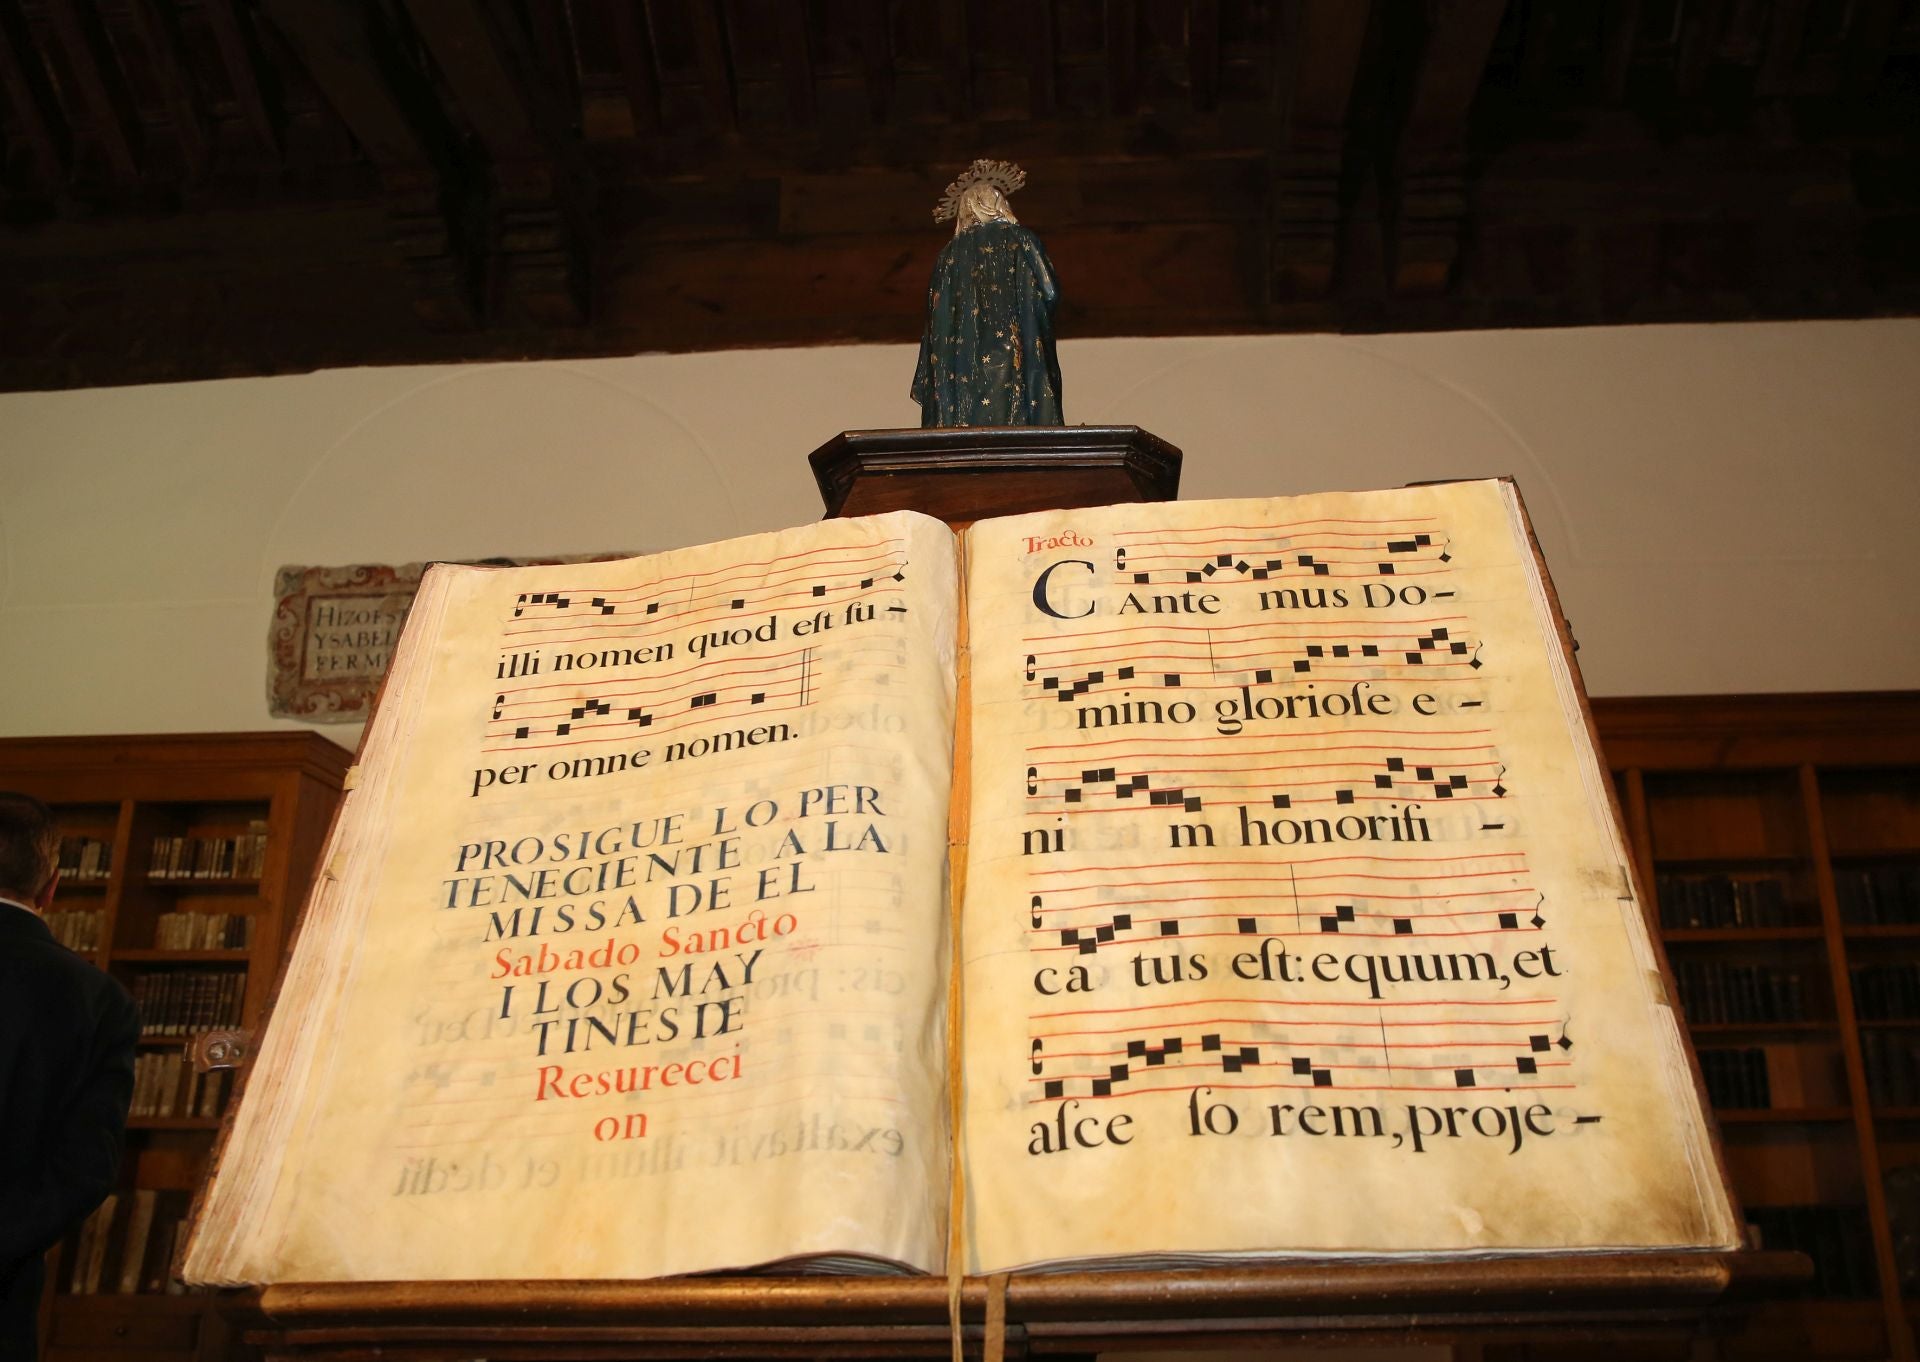 HIZOEST
YSABEL
FERM
illi nomen quod eſt ſu-
per omne nomen.
PROSIGUE LO PER
TENECIENTE A LA
MISSA DE EL
Sabado Sancto
I LOS MAY
TINES DE
Resurecci
on
Tracto
CAnte mus Do-
mino glorioſe e-
ni m honorifi -
ca tus eſt: equum, et
aſce ſo rem, proje-